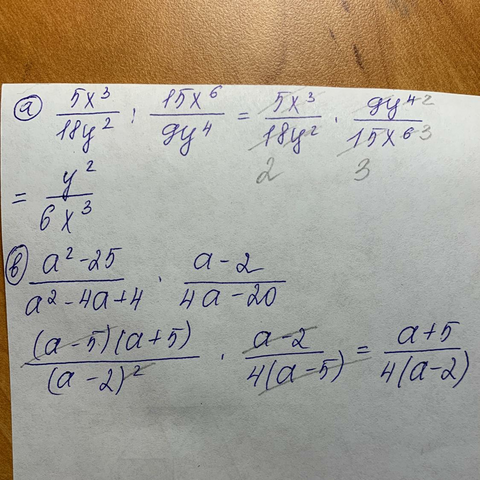 а) 5x³/18y² : 15x⁶/9y⁴ = 5x³/18y² · 9y⁴ ²/15x⁶ ³
2 3
= y²/6x³
в) a²-25/a²-4a+4 · a-2/4a-20
(a-5)(a+5)/(a-2)² · a-2/4(a-5) = a+5/4(a-2)